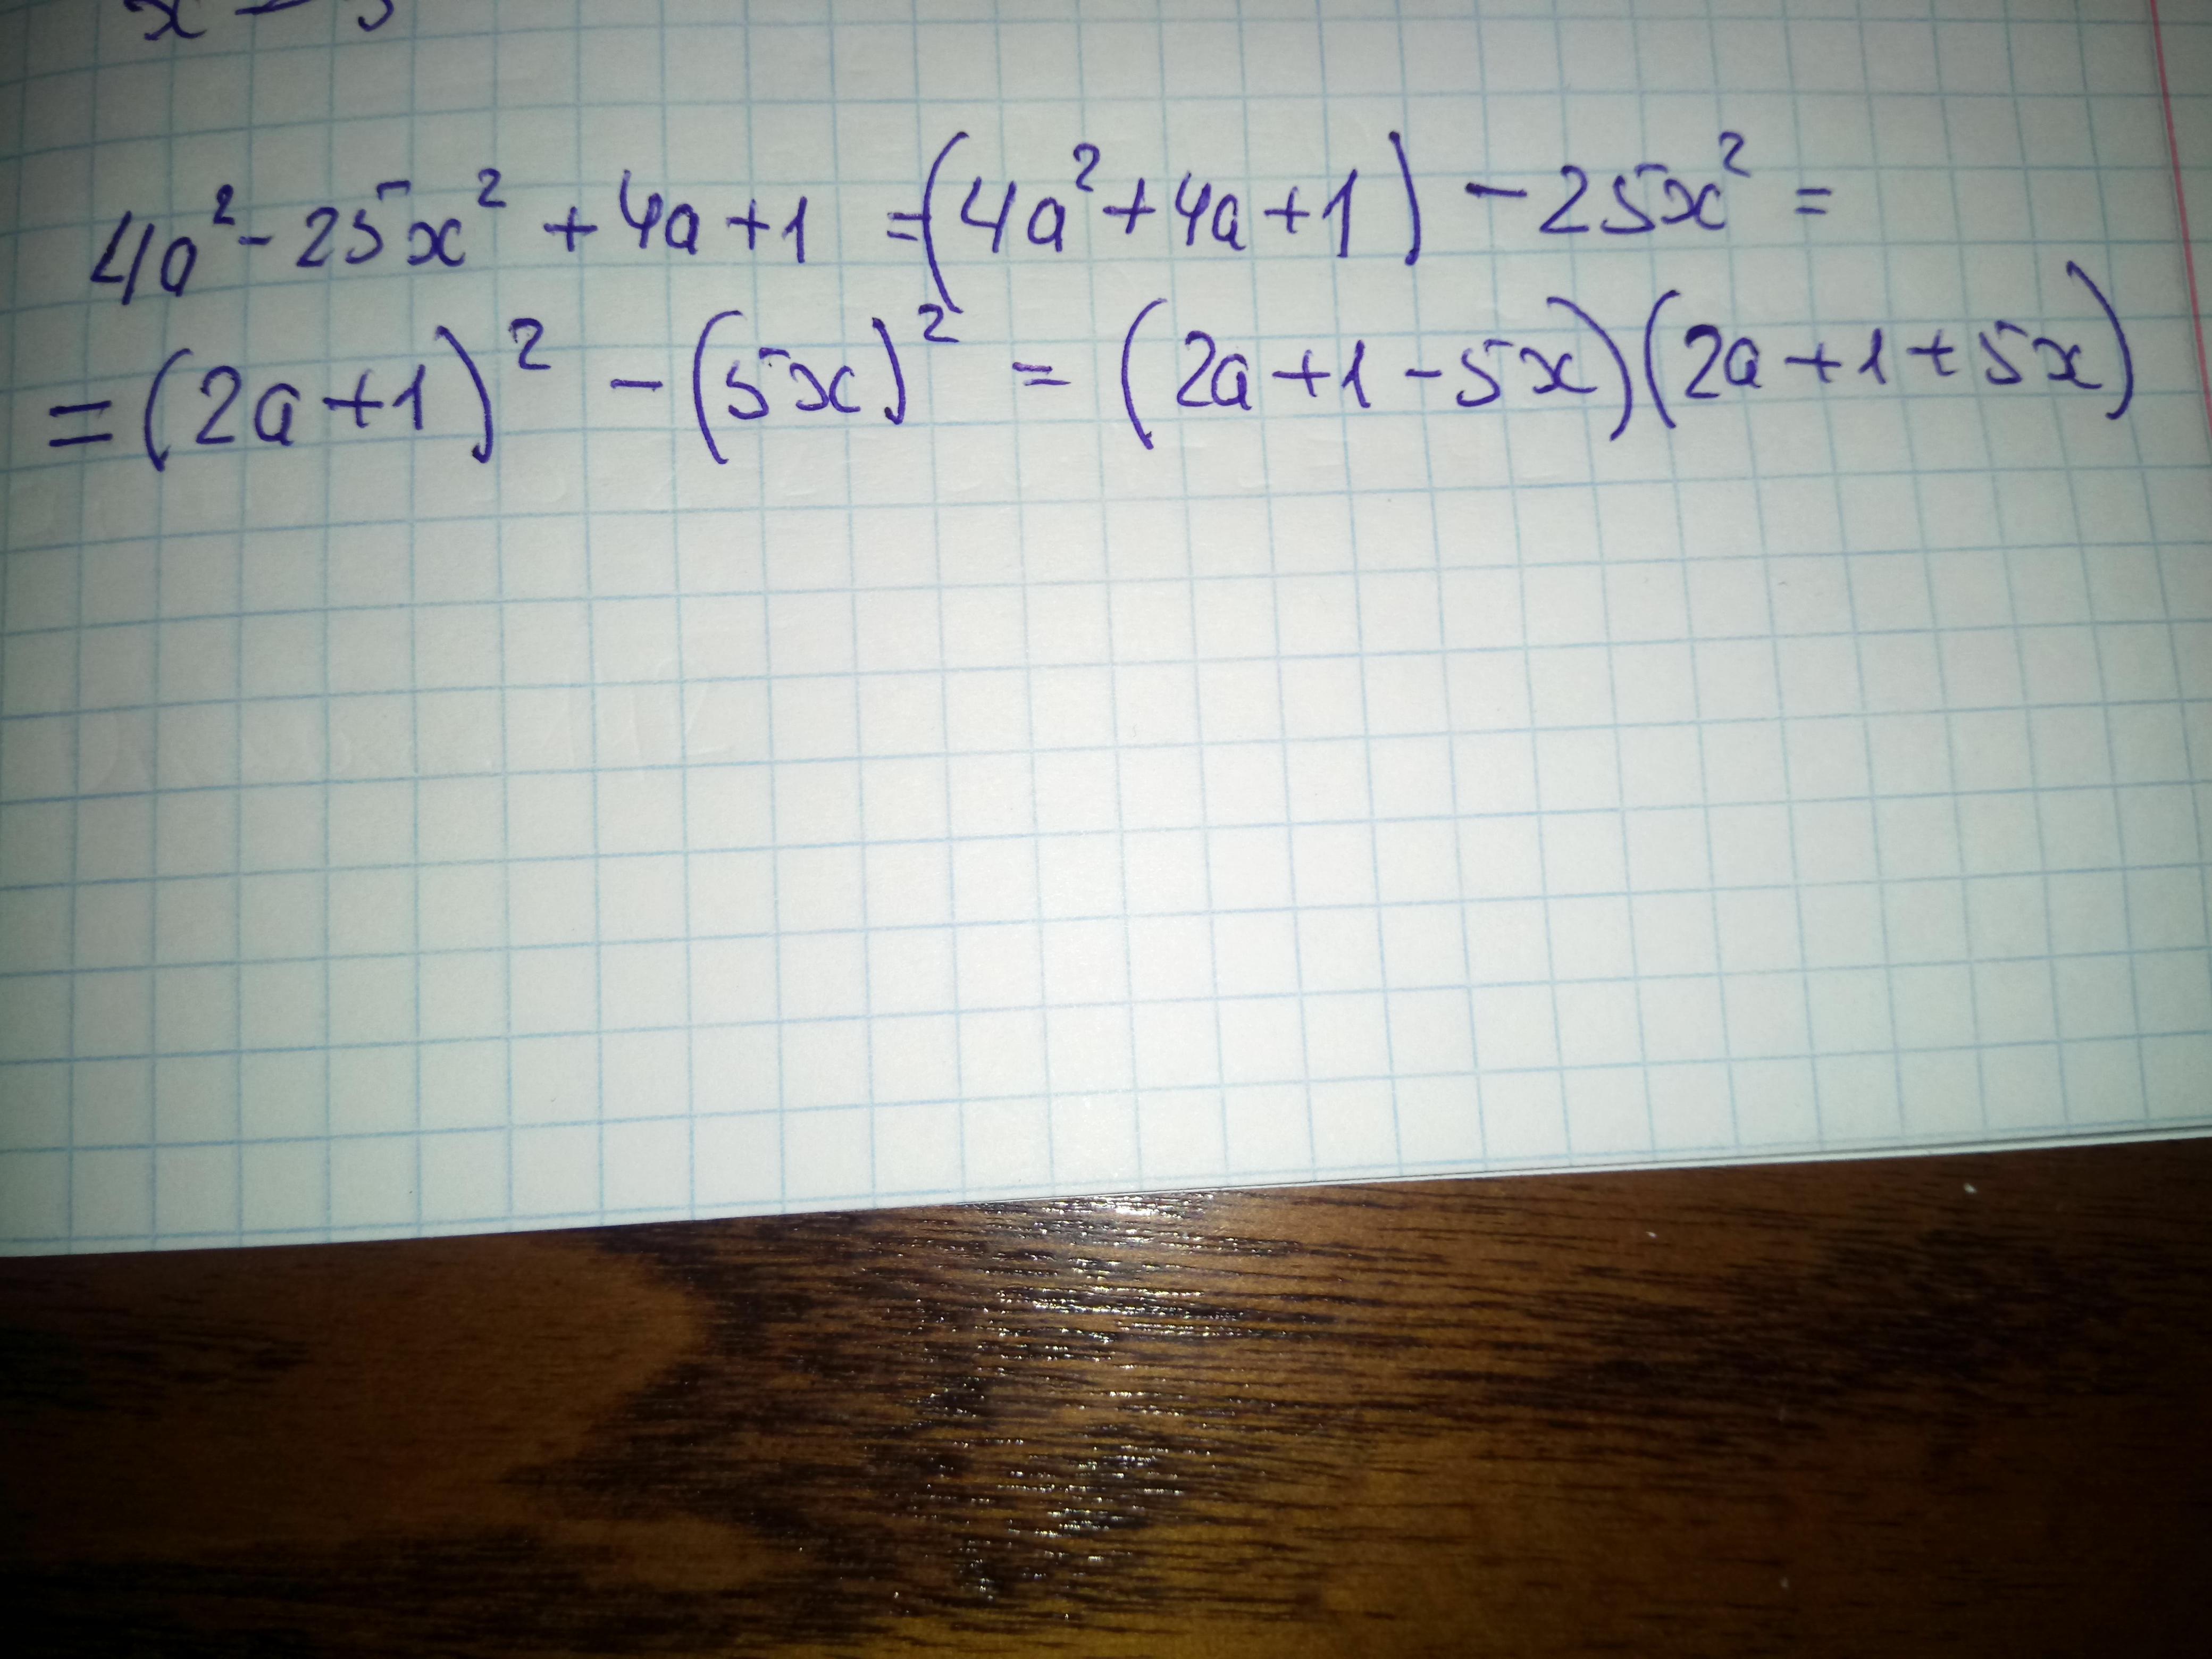 4a² - 25x² + 4a + 1 = (4a² + 4a + 1) - 25x² =
= (2a + 1)² - (5x)² = (2a + 1 - 5x)(2a + 1 + 5x)